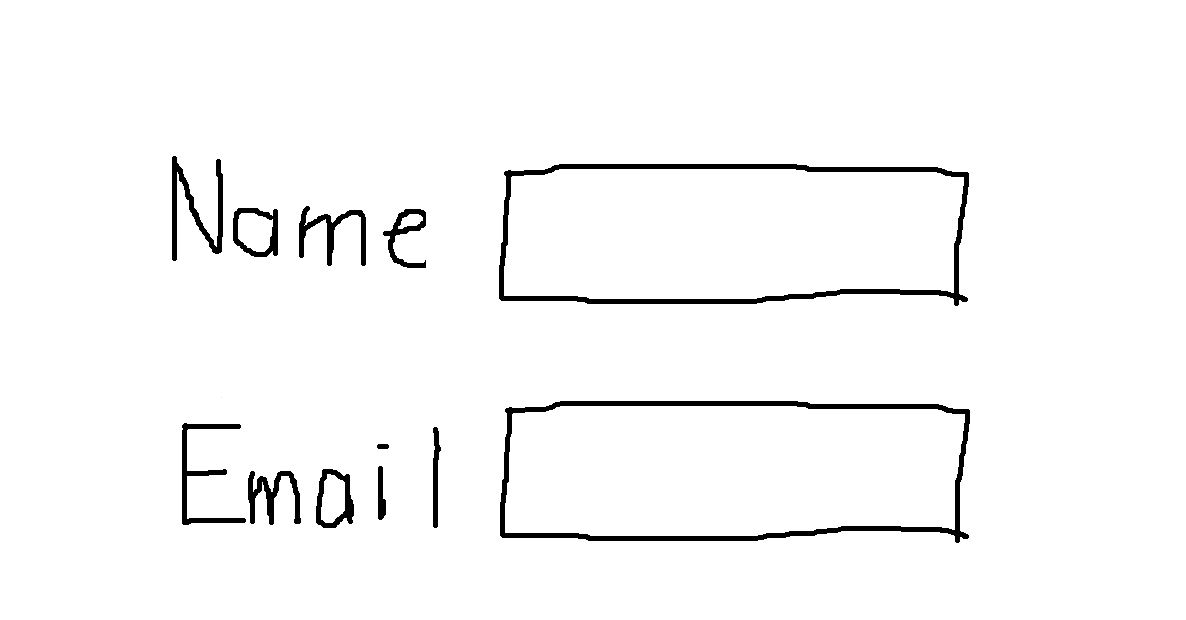 Name
Email